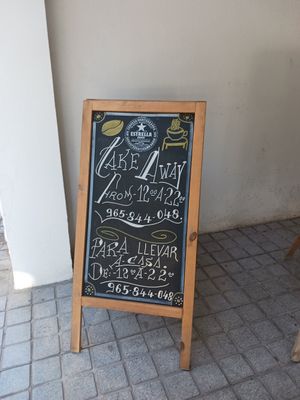 ESTRELLA
TAKE AWAY
FROM-12:00 A-22:00
965-844-048.
PARA LLEVAR
A-CASA.
DE:-12:00 A-22:00
965-844-048